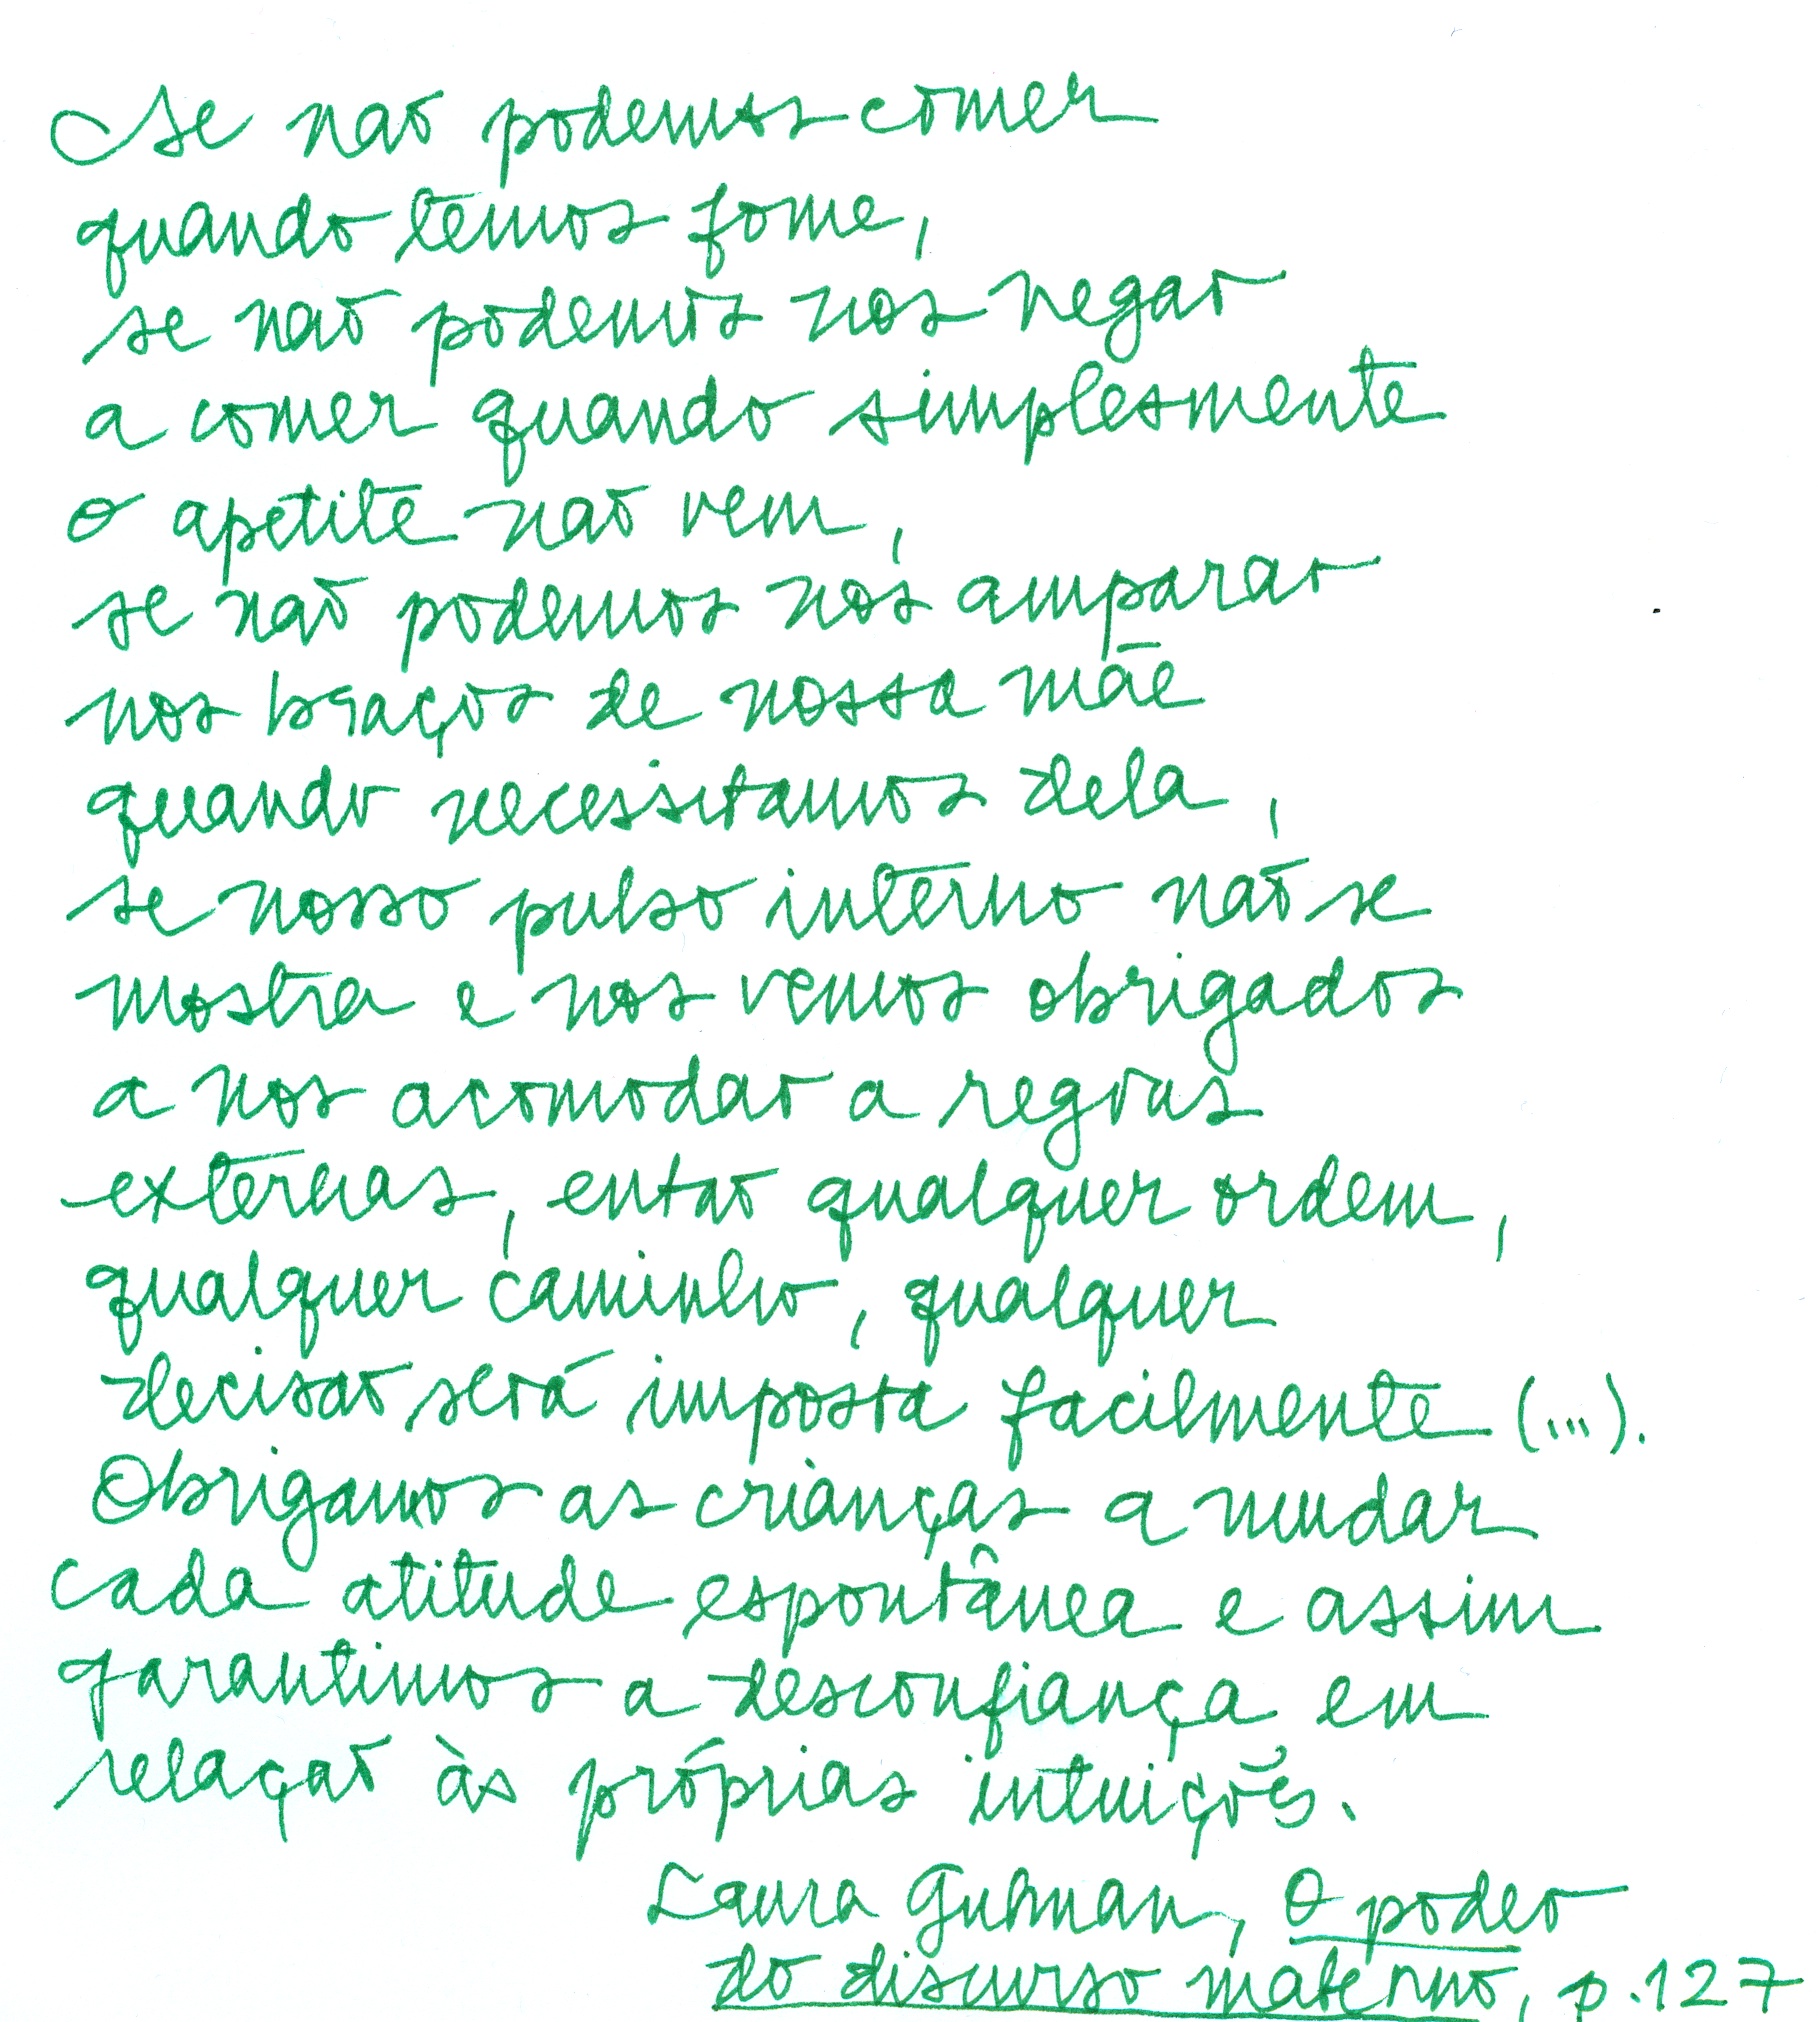 Se não podemos comer
quando temos fome,
se não podemos nos negar
a comer quando simplesmente
o apetite não vem,
se não podemos nos amparar
nos braços de nossa mãe
quando necessitamos dela,
se nosso pulso interno não se
mostra e nos vemos obrigados
a nos acomodar a regras
externas, então qualquer ordem,
qualquer caminho, qualquer
decisão será imposta facilmente (...).
Obrigamos as crianças a mudar
cada atitude espontânea e assim
garantimos a desconfiança em
relação às próprias intuições.
Laura Gutman, O poder
do discurso materno, p.127